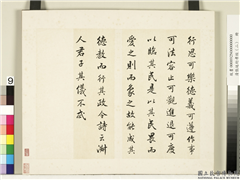 行思可樂德義可遵作事
可法容止可觀進退可度
以臨其民是以其民畏而
愛之則而象之故能成其
德教而行其政令詩云淑
人君子其儀不忒
9